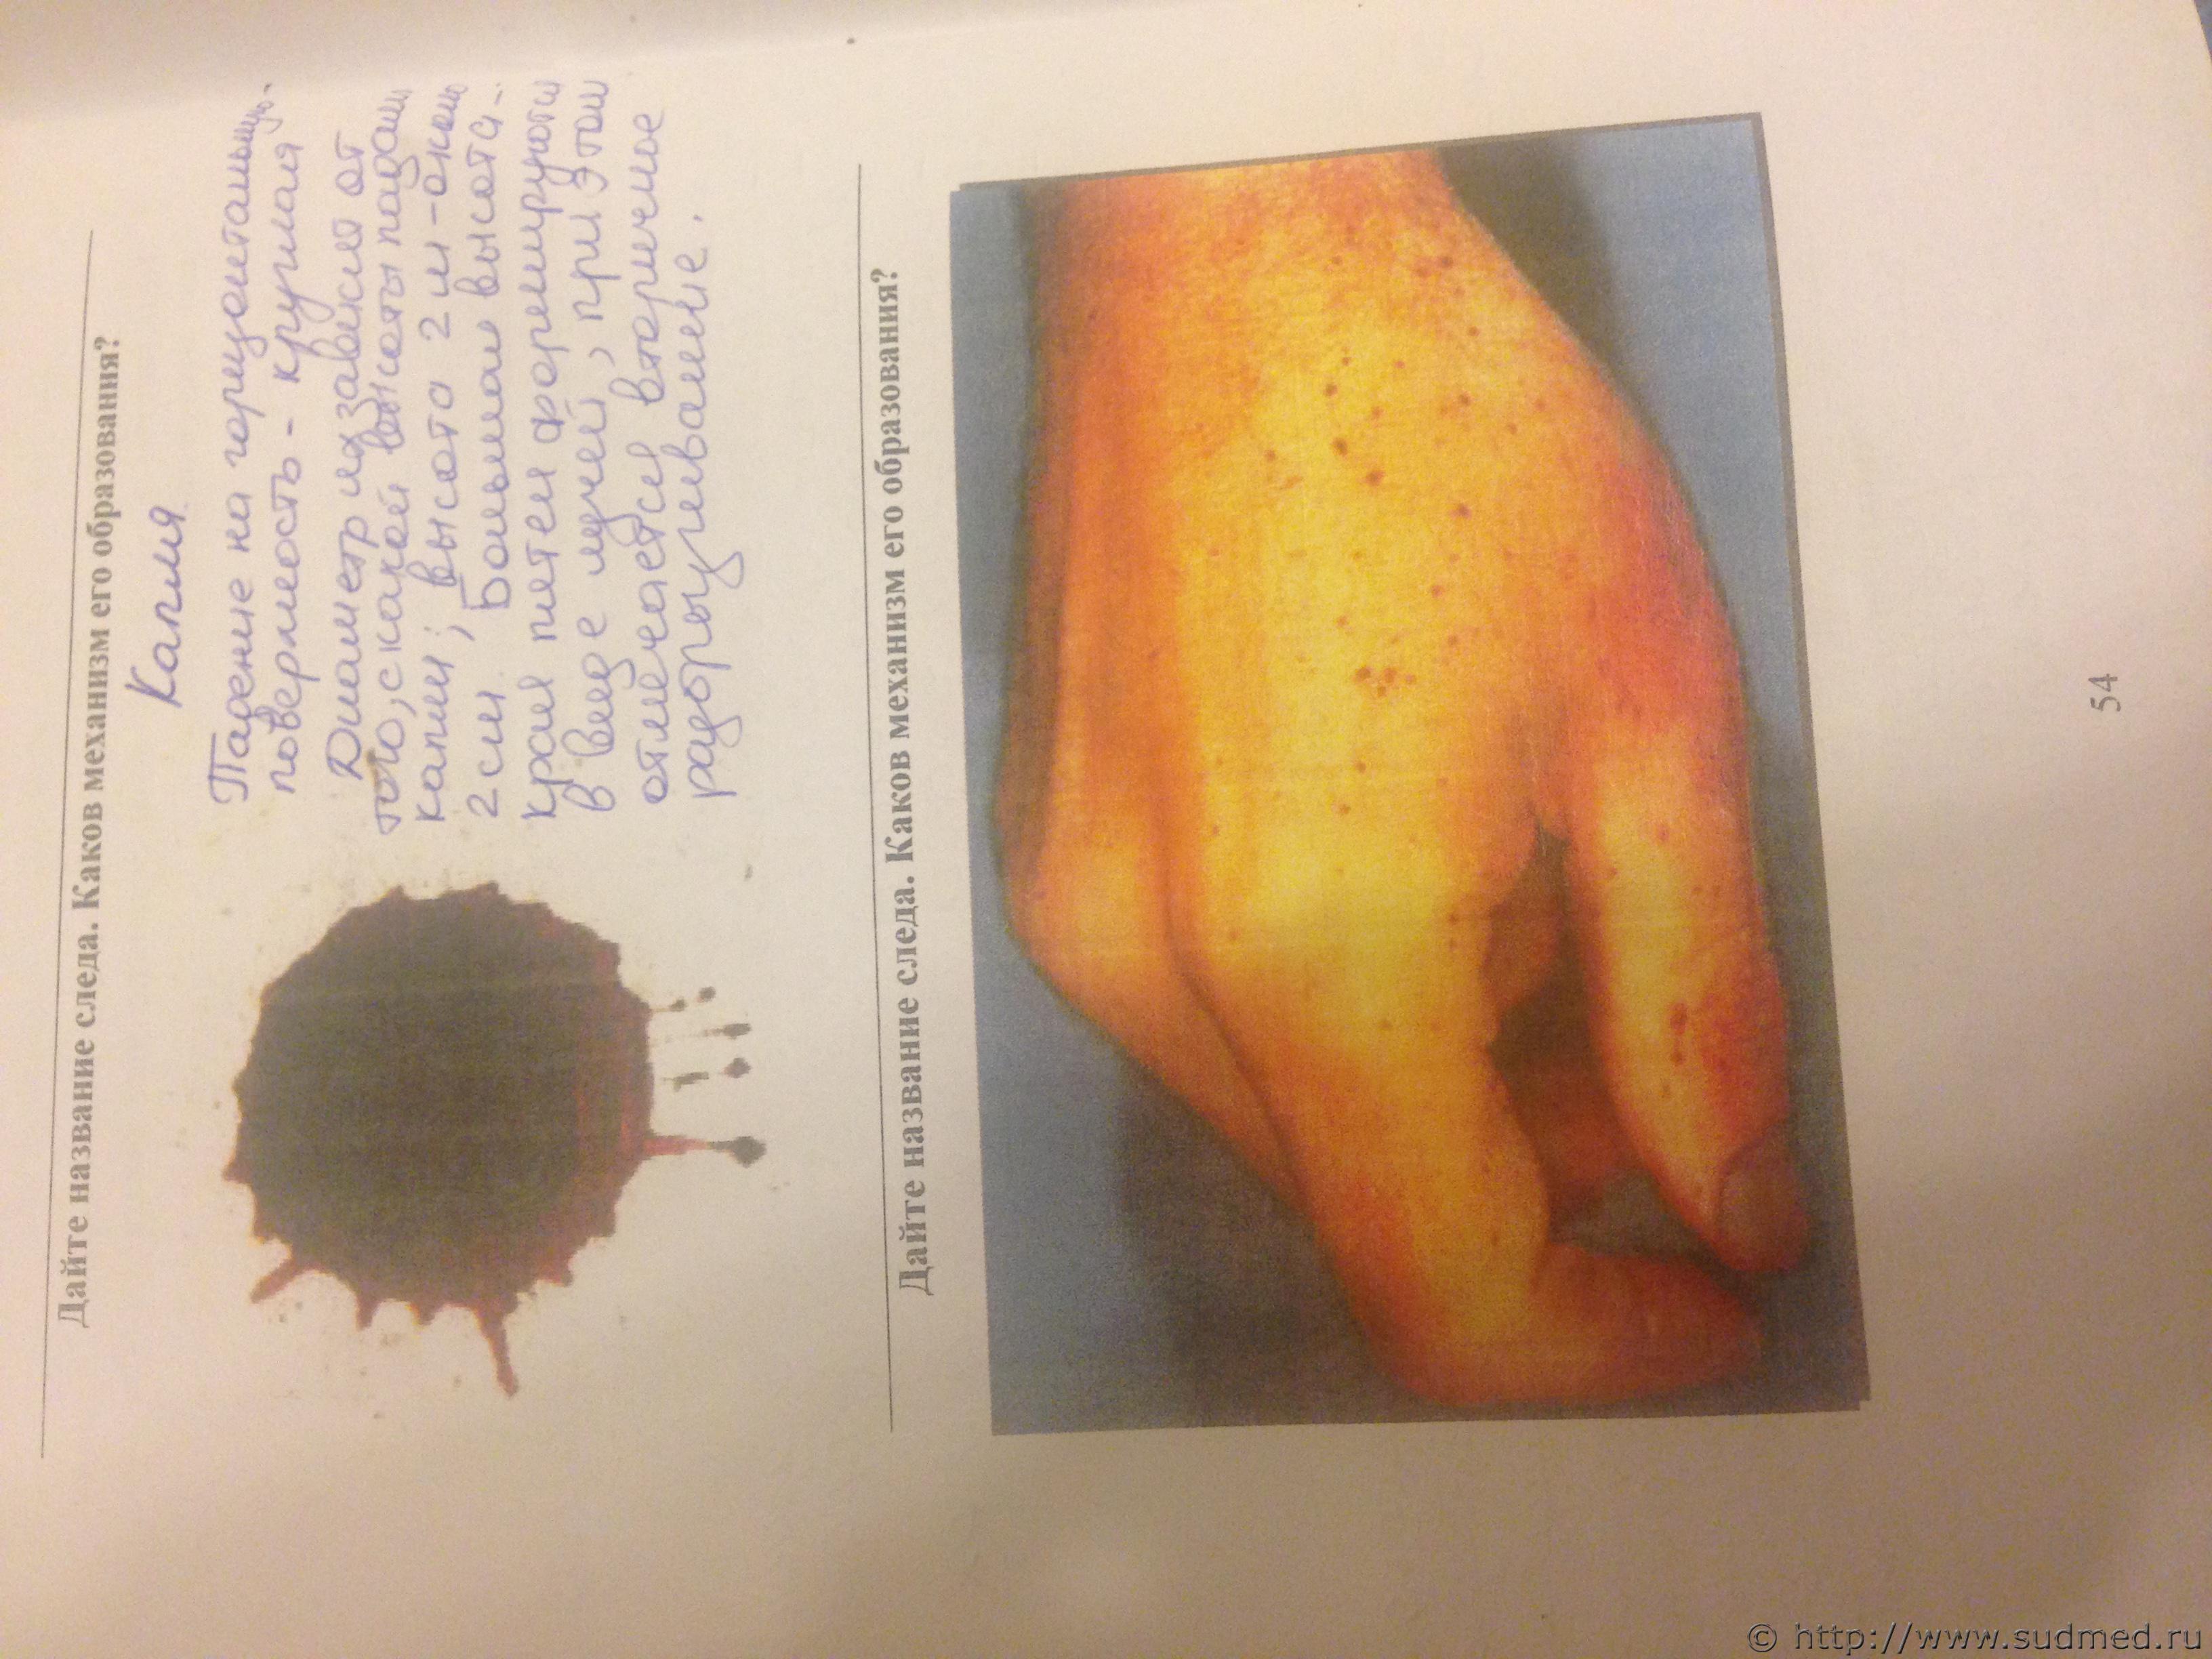 Дайте название следа. Каков механизм его образования?
Капля
Падение на горизонтальную.
поверхность - круглая
Диаметр их зависит от
того, с какой высоты падали
капли; высота 2 м - около
2 см. Большая высота -
края пятен формируются
в виде лучей, при этом
отмечается вторичное
разбрызгивание.
Дайте название следа. Каков механизм его образования?
54
© http://www.sudmed.ru